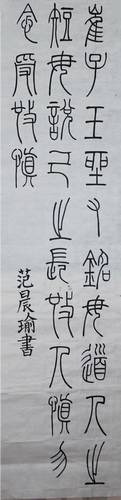 崔子玉座右銘毋道人之
短毋說己之長施人慎勿
念受施慎
范晨瑜書